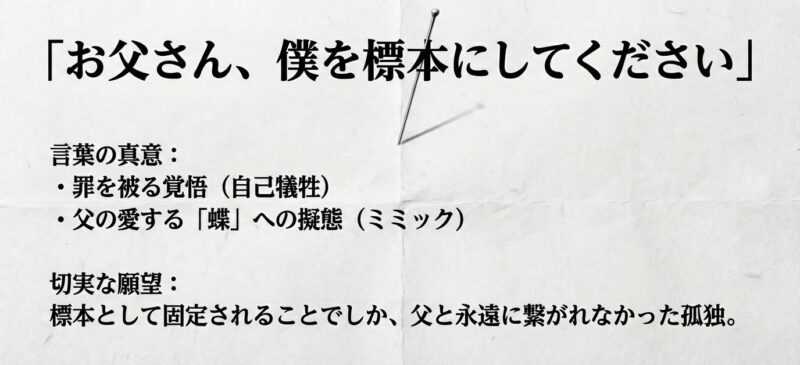 「お父さん、僕を標本にしてください」
言葉の真意：
・罪を被る覚悟（自己犠牲）
・父の愛する「蝶」への擬態（ミミック）
切実な願望：
標本として固定されることでしか、父と永遠に繋がれなかった孤独。